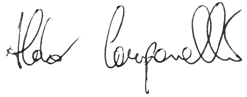 Aldo Campanelli